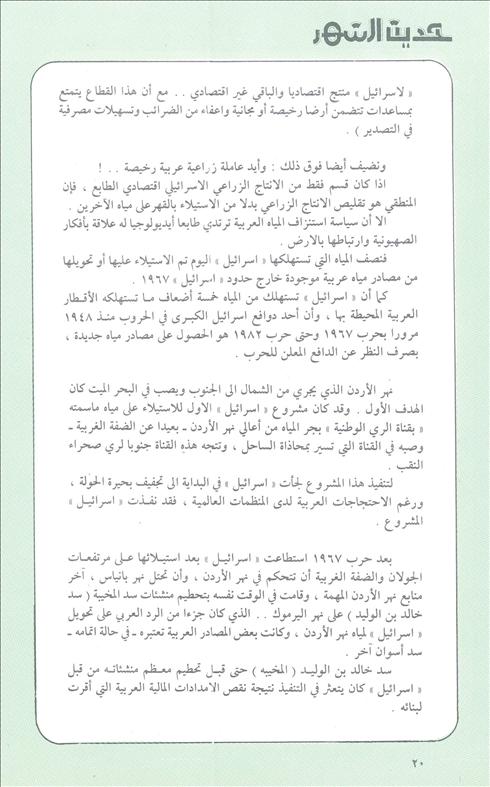 حديث الشهر
« لاسرائيل » منتج اقتصاديا والباقي غير اقتصادي . . مع أن هذا القطاع يتمتع
بمساعدات تتضمن أرضا رخيصة أو مجانية واعفاء من الضرائب وتسهيلات مصرفية
في التصدير ) .
ونضيف أيضا فوق ذلك : وأيد عاملة زراعية عربية رخيصة . . !
اذا كان قسم فقط من الانتاج الزراعي الاسرائيلي اقتصادي الطابع ، فإن
المنطقي هو تقليص الانتاج الزراعي بدلا من الاستيلاء بالقهر على مياه الآخرين .
الا أن سياسة استنزاف المياه العربية ترتدي طابعا أيديولوجيا له علاقة بأفكار
الصهيونية وارتباطها بالارض .
فنصف المياه التي تستهلكها « اسرائيل » اليوم تم الاستيلاء عليها أو تحويلها
من مصادر مياه عربية موجودة خارج حدود « اسرائيل » ١٩٦٧ .
كما أن « اسرائيل » تستهلك من المياه خمسة أضعاف ما تستهلكه الأقطار
العربية المحيطة بها ، وأن أحد دوافع اسرائيل الكبرى في الحروب منذ ١٩٤٨
مرورا بحرب ١٩٦٧ وحتى حرب ١٩٨٢ هو الحصول على مصادر مياه جديدة ،
بصرف النظر عن الدافع المعلن للحرب .
نهر الأردن الذي يجري من الشمال الى الجنوب ويصب في البحر الميت كان
الهدف الأول . وقد كان مشروع « اسرائيل » الاول للاستيلاء على مياه ماسمته
« بقناة الري الوطنية » بجر المياه من أعالي نهر الأردن ـ بعيدا عن الضفة الغربية ـ
وصبه في القناة التي تسير بمحاذاة الساحل ، وتتجه هذه القناة جنوبا لري صحراء
النقب .
لتنفيذ هذا المشروع لجأت « اسرائيل » في البداية الى تجفيف بحيرة الحولة ،
ورغم الاحتجاجات العربية لدى المنظمات العالمية ، فقد نفذت « اسرائيل »
المشروع .
بعد حرب ١٩٦٧ استطاعت « اسرائيل » بعد استيلائها على مرتفعات
الجولان والضفة الغربية أن تتحكم في نهر الأردن ، وأن تحتل نهر بانياس ، آخر
منابع نهر الأردن المهمة ، وقامت في الوقت نفسه بتحطيم منشئات سد المخيبة ( سد
خالد بن الوليد ) على نهر اليرموك . . الذي كان جزءا من الرد العربي على تحويل
« اسرائيل » لمياه نهر الأردن ، وكانت بعض المصادر العربية تعتبره ـ في حالة اتمامه ـ
سد أسوان آخر .
سد خالد بن الوليد ( المخيبه ) حتى قبل تحطيم معظم منشئاته من قبل
« اسرائيل » كان يتعثر في التنفيذ نتيجة نقص الامدادات المالية العربية التي أقرت
لبنائه .
٢٠